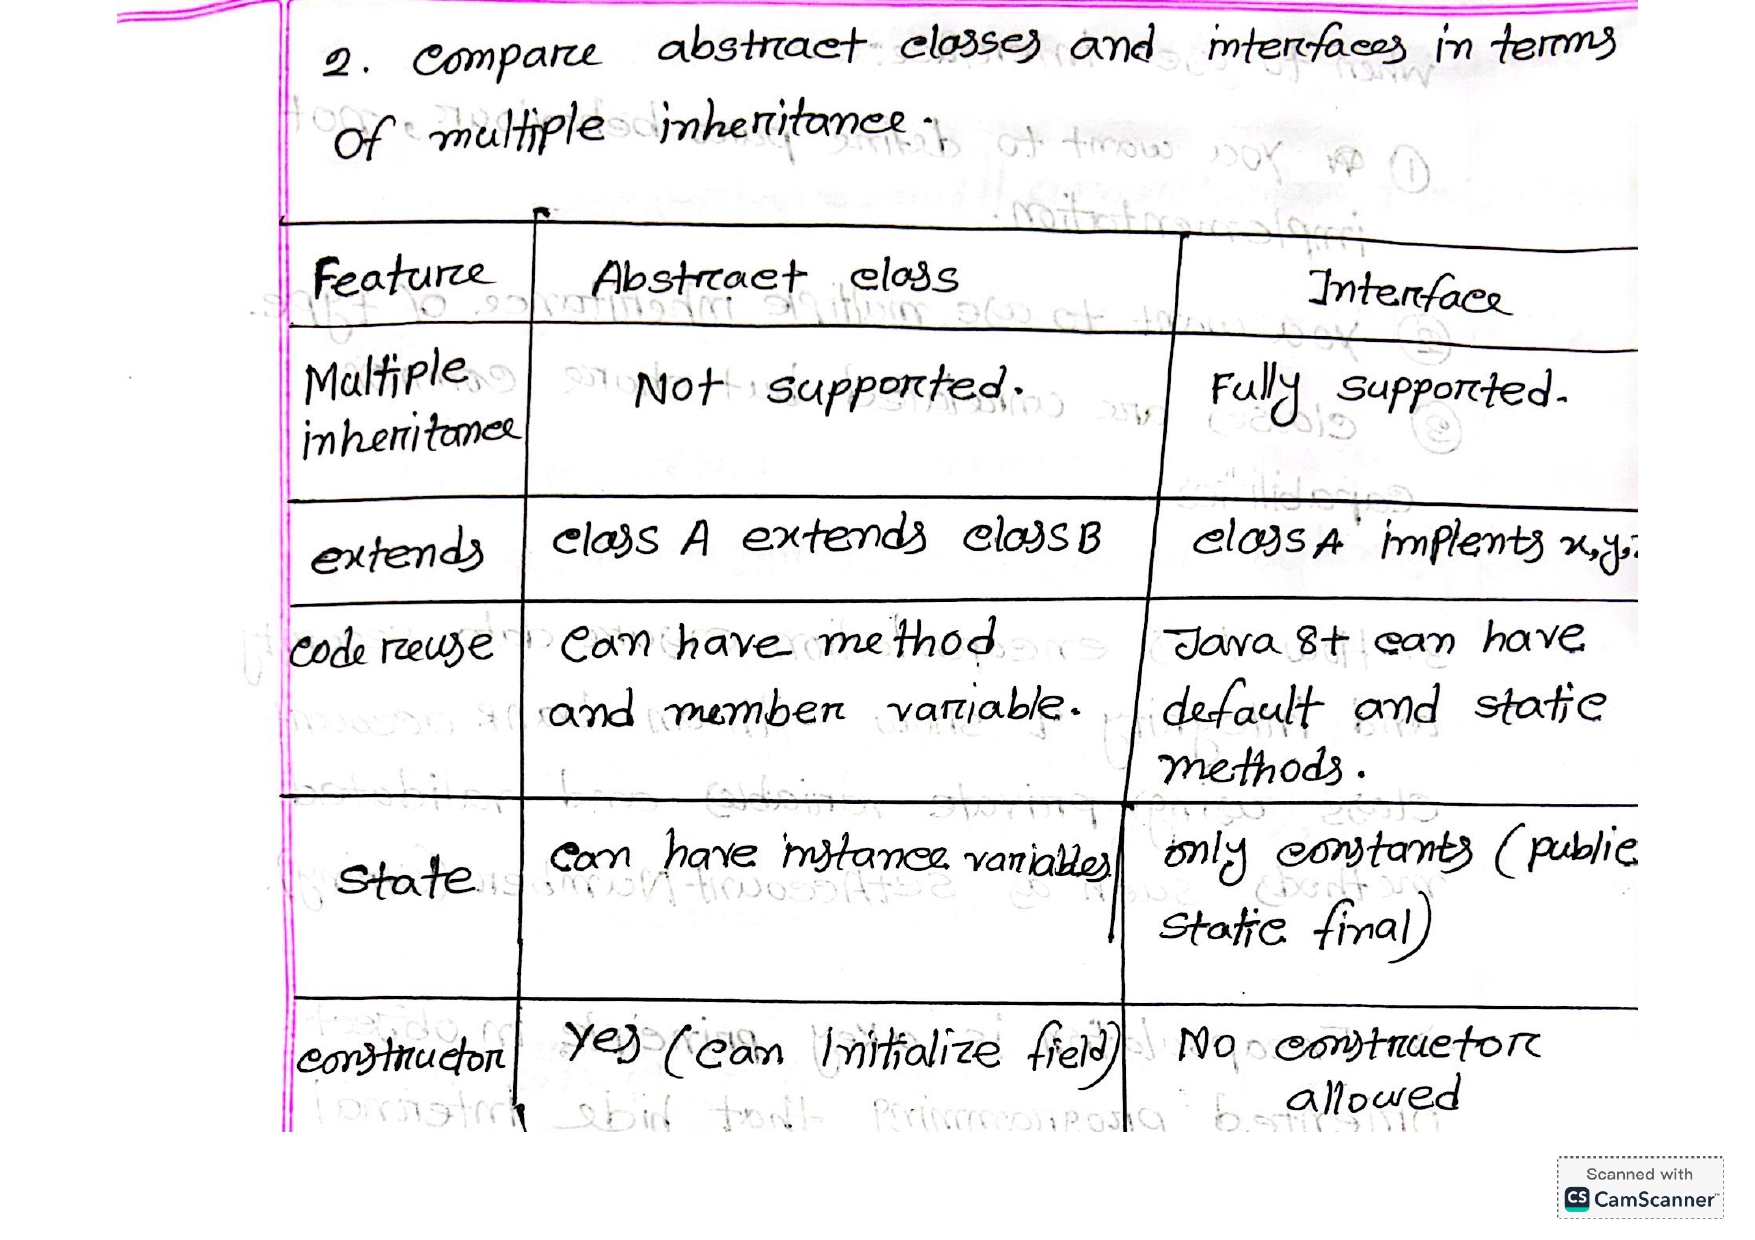 2. Compare abstract classes and interfaces in terms
of multiple inheritance.
Feature Abstract class Interface
Multiple inheritance Not supported. Fully supported.
extends class A extends class B class A implents x,y,
code reuse Can have method
and member variable. Java 8+ can have
default and static
methods.
State can have instance variables only constants (public
static final)
constructor Yes (can Initialize field) No constructor
allowed
Scanned with
CS CamScanner